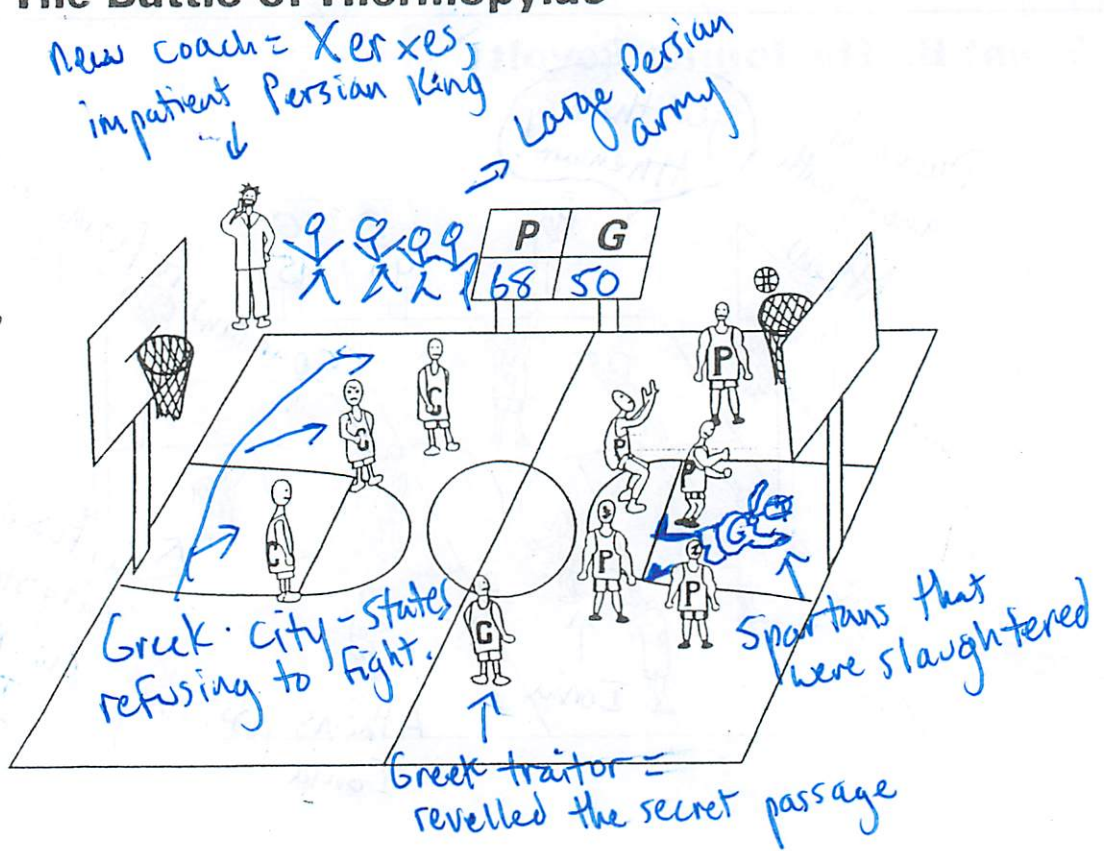 The Battle of Thermopylae
New coach = Xerxes,
impatient Persian King
Large Persian
army
P G
68 50
P
G
G
P
P
G
G
P
P
G
Greek city-states
refusing to fight.
Spartans that
were slaughtered
Greek traitor =
revelled the secret passage